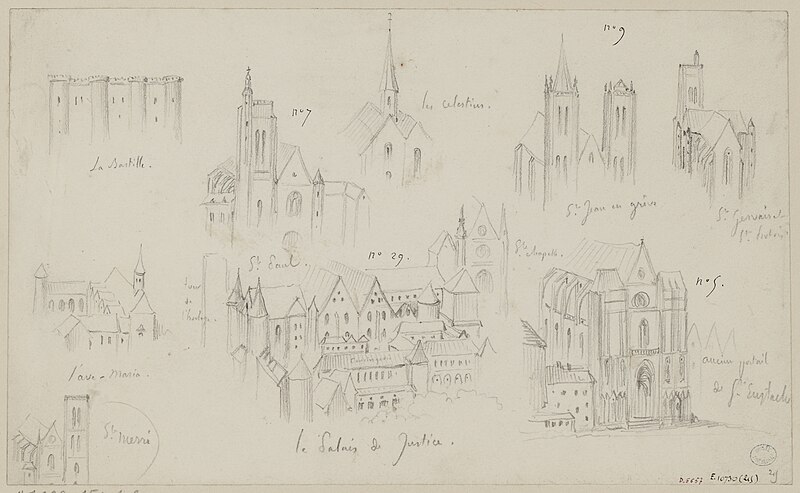 nº 9
nº 7
les Celestins.
La Bastille.
St Jean en grève
St Gervais et
St
St Paul.
nº 29.
Ste chapelle.
nº 5.
tour
de
l'horloge.
l'ave-maria.
ancien portail
de St Eustache
St merri
le Palais de Justice.
D.5657
E.10730 (24)